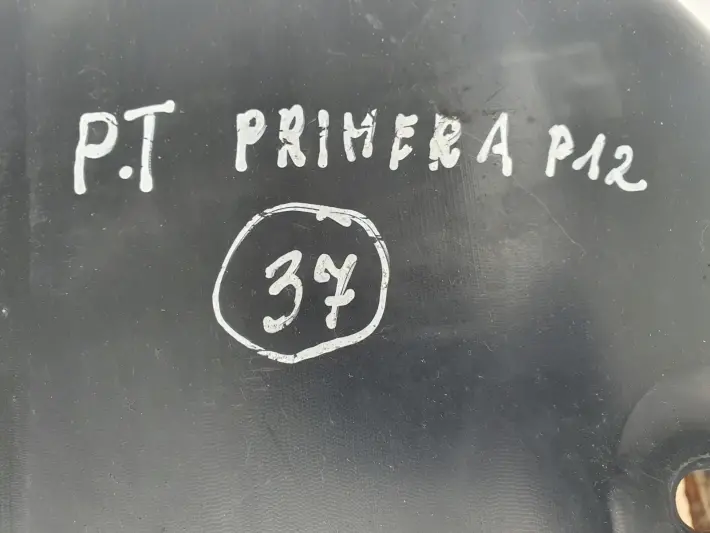 P.T PRIMERA P12
37